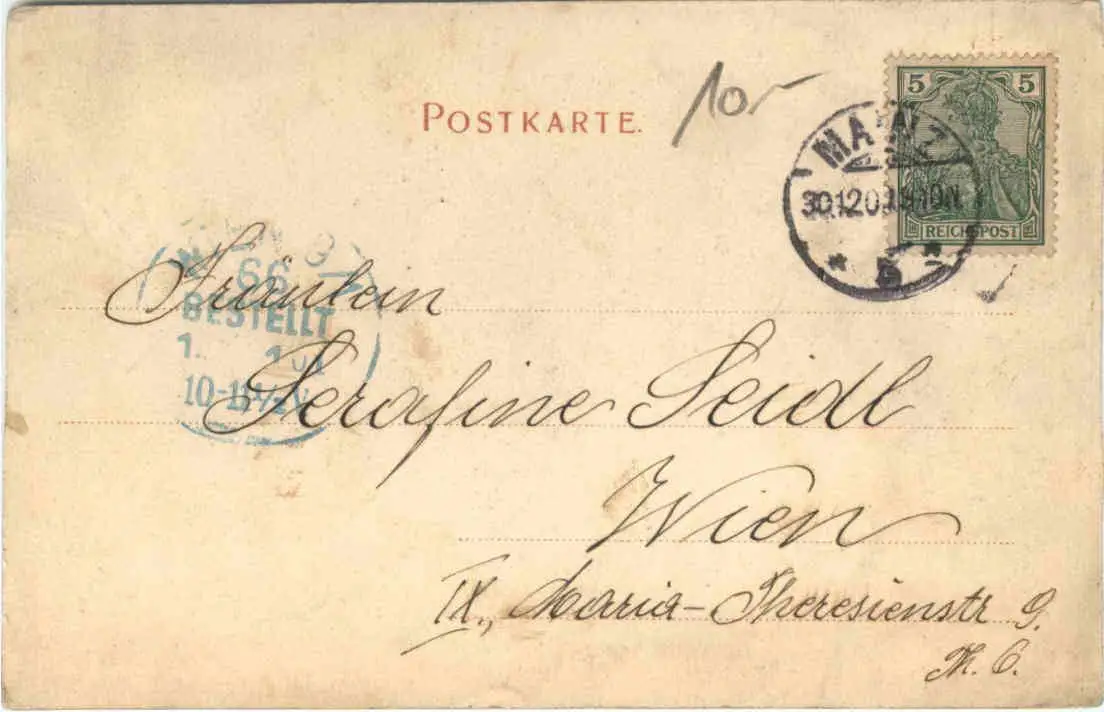 POSTKARTE.
10-
5 5
REICHSPOST
MAINZ
30.12.0
Fräulein
BESTELLT
1. 1 01
10-11½V
Serafine Seidl
Wien
IX., Maria-Theresienstr 9.
Th. 6.